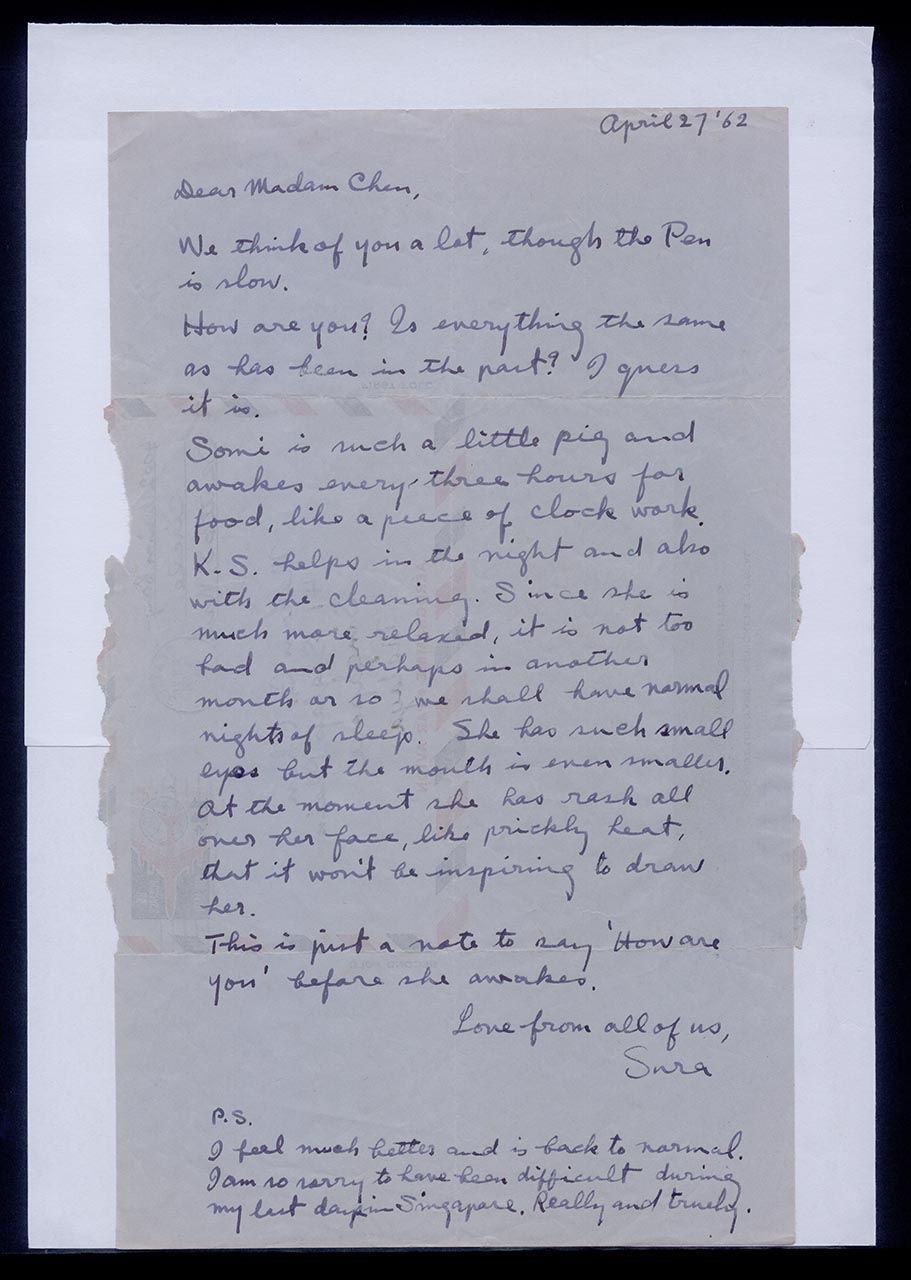 April 27 '62
Dear Madam Chen,
We think of you a lot, though the Pen
is slow.
How are you? Is everything the same
as has been in the past? I guess
it is.
Somi is such a little pig and
awakes every three hours for
food, like a piece of clock work.
K.S. helps in the night and also
with the cleaning. Since she is
much more relaxed, it is not too
bad and perhaps in another
month or so we shall have normal
nights of sleep. She has such small
eyes but the mouth is even smaller.
At the moment she has rash all
over her face, like prickly heat,
that it won't be inspiring to draw
her.
This is just a note to say 'How are
you' before she awakes.
Love from all of us,
Sura
P.S.
I feel much better and is back to normal.
I am so sorry to have been difficult during
my last days in Singapore. Really and truely.
FIRST FOLD
SECOND FOLD